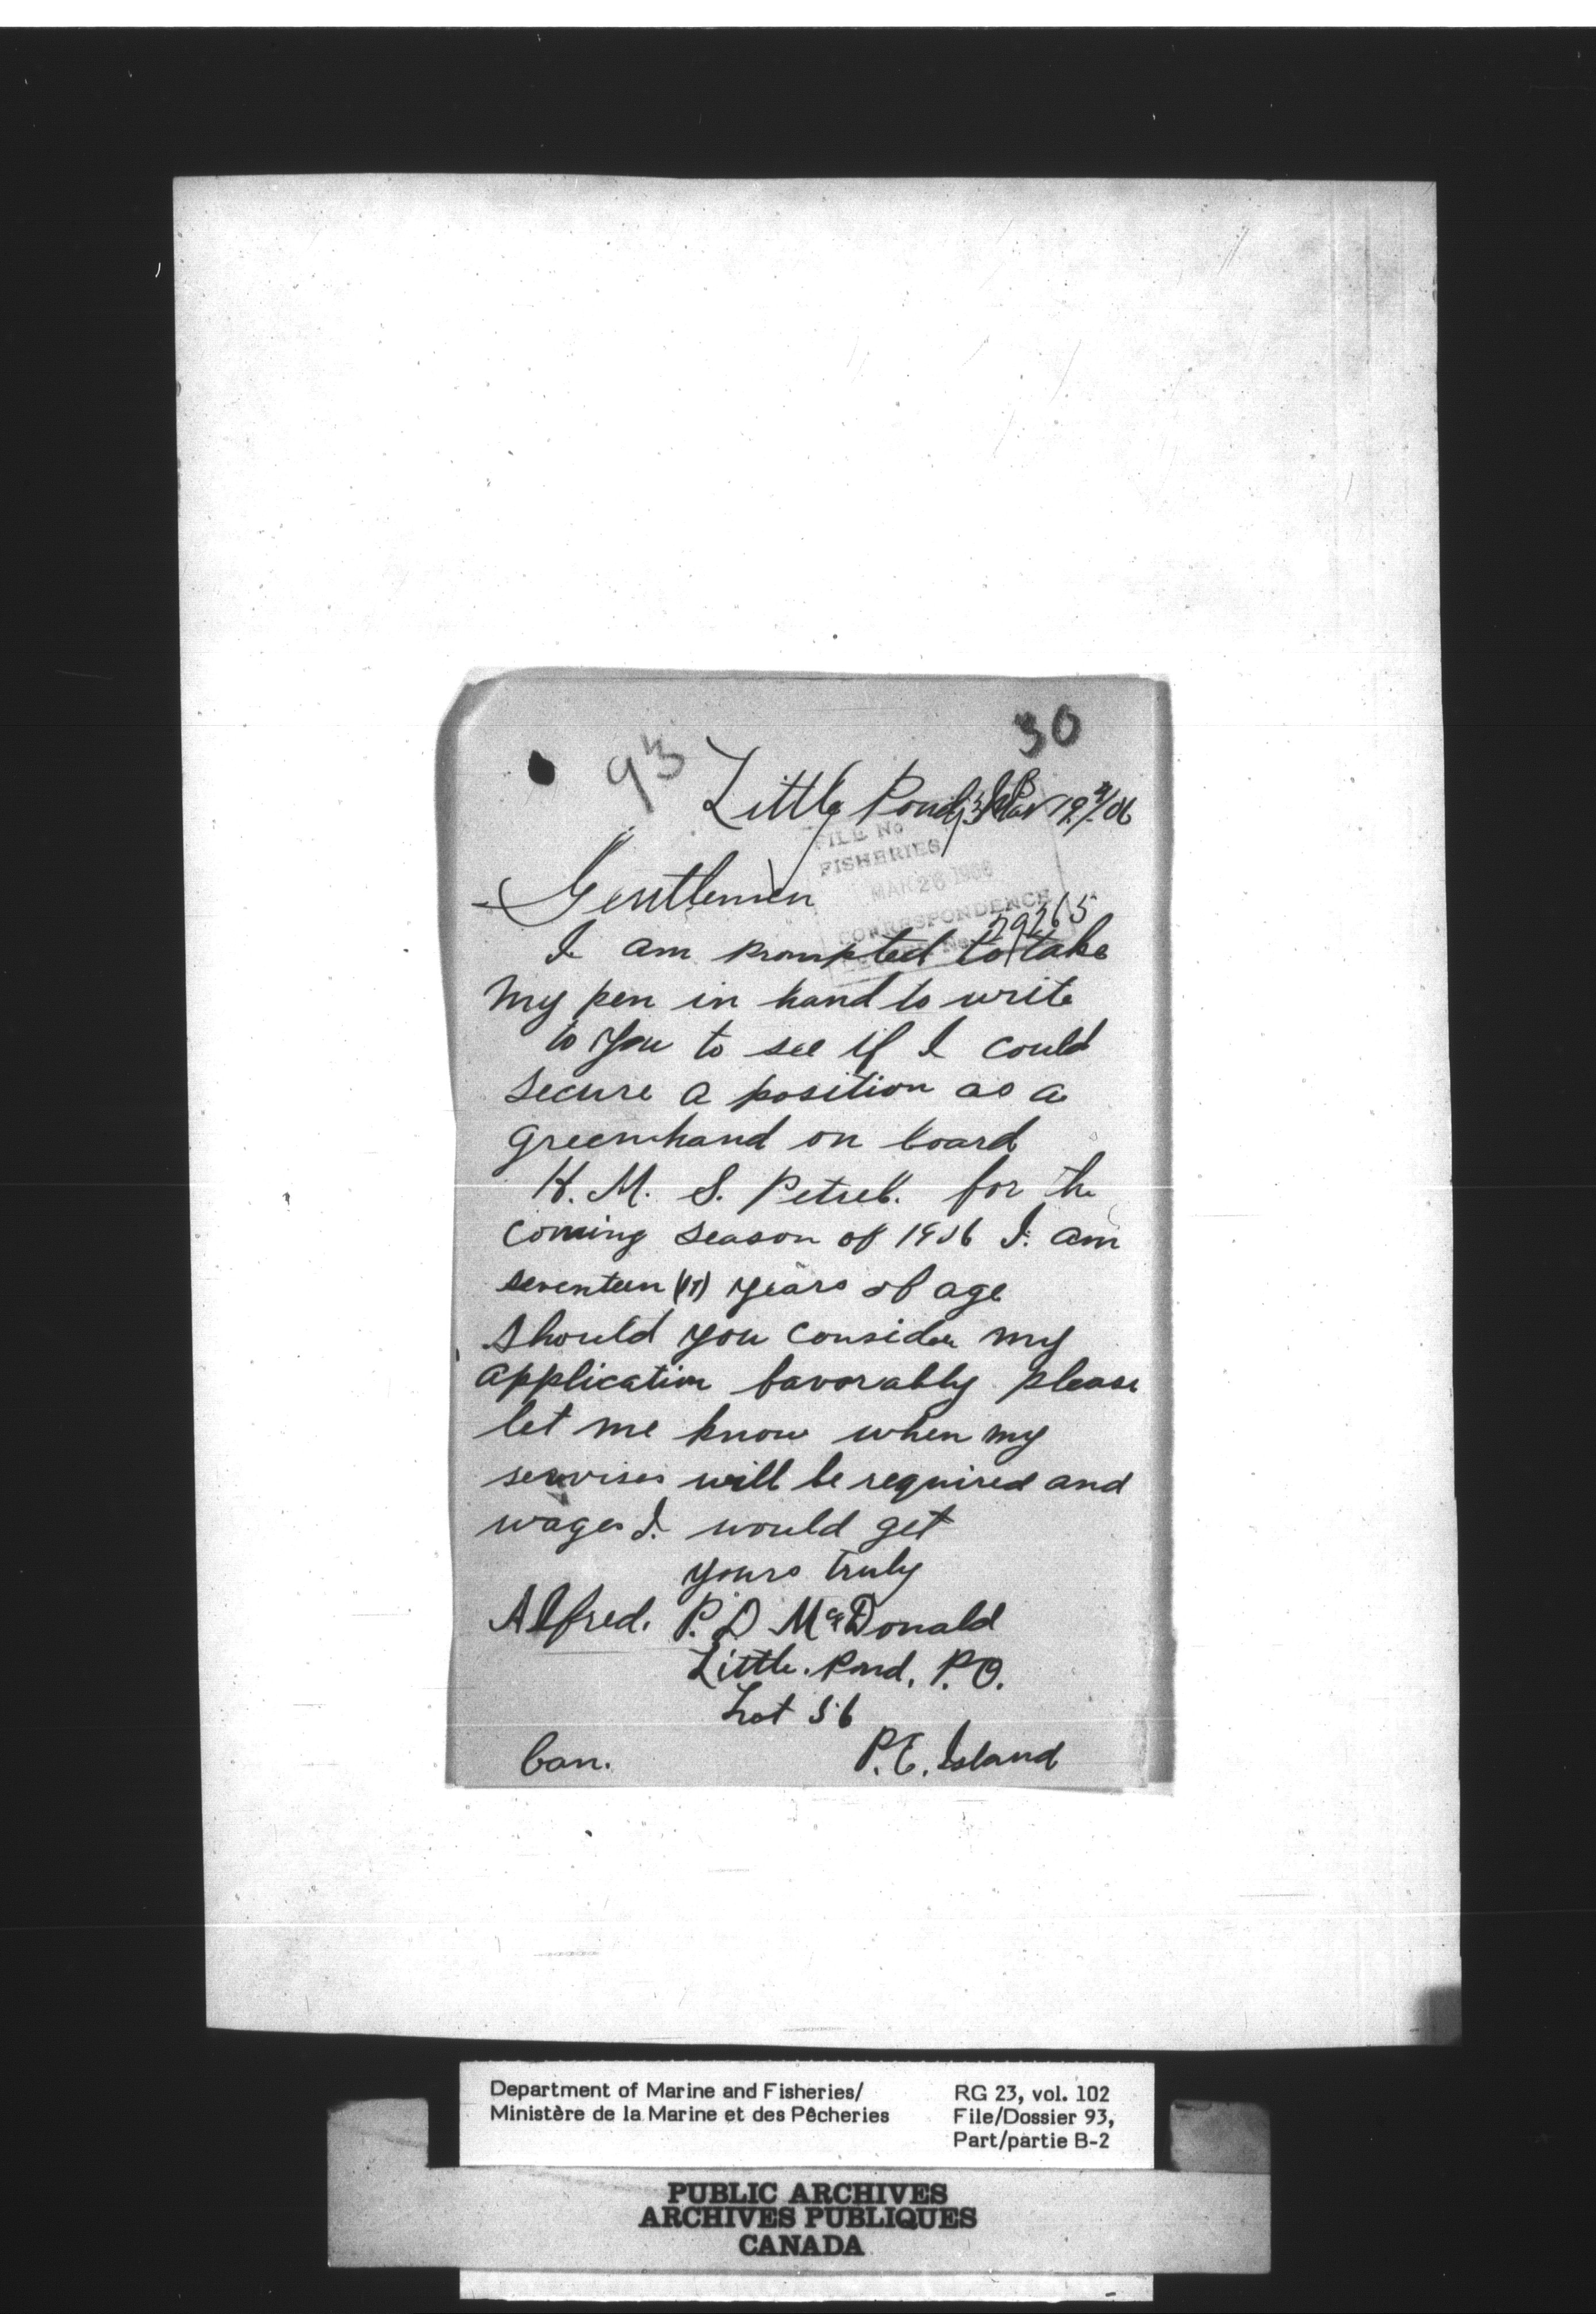 30
93
Little Pond, Mar 19th/06
FILE No
FISHERIES
MAR 26 1906
CORRESPONDENCE
No. 29265
Gentlemen
I am prompted to take
my pen in hand to write
to you to see if I could
secure a position as a
greenhand on board
H. M. S. Petrel. for the
coming season of 1906 I. am
seventeen (17) years of age
should you consider my
application favorably please
let me know when my
servises will be required and
wages I. would get
yours truly
Alfred. P. D McDonald
Little. Pond. P.O.
Lot 56
Can. P. E. Island
Department of Marine and Fisheries/
Ministère de la Marine et des Pêcheries
RG 23, vol. 102
File/Dossier 93,
Part/partie B-2
PUBLIC ARCHIVES
ARCHIVES PUBLIQUES
CANADA